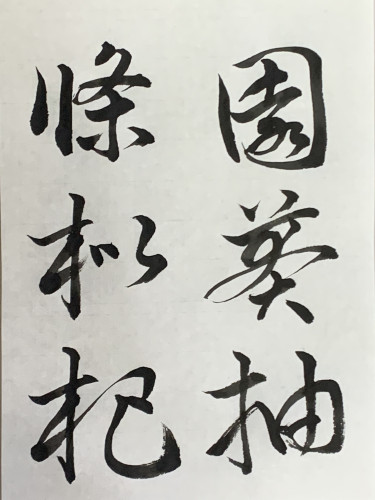 園莽抽
條枇杷